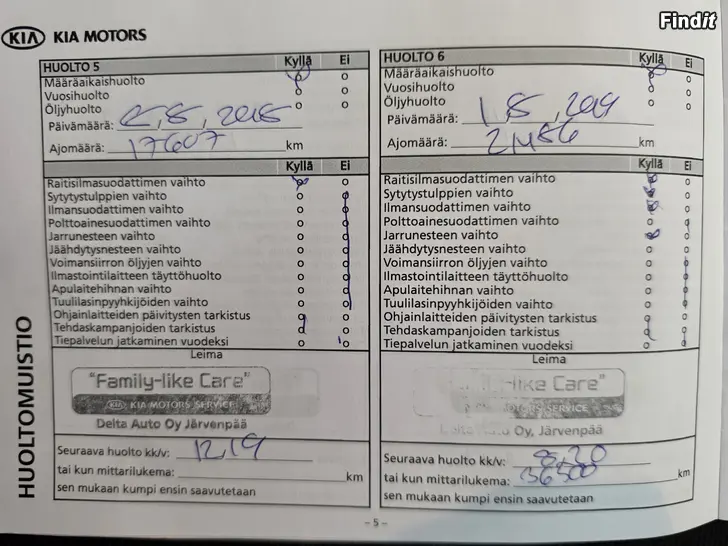 Findit
KIA KIA MOTORS
HUOLTO 5 Kyllä Ei
Määräaikaishuolto
Vuosihuolto
Öljyhuolto
Päivämäärä:
Ajomäärä: 17607 km
Kyllä Ei
Raitisilmasuodattimen vaihto
Sytytystulppien vaihto
Ilmansuodattimen vaihto
Polttoainesuodattimen vaihto
Jarrunesteen vaihto
Jäähdytysnesteen vaihto
Voimansiirron öljyjen vaihto
Ilmastointilaitteen täyttöhuolto
Apulaitehihnan vaihto
Tuulilasinpyyhkijöiden vaihto
Ohjainlaitteiden päivitysten tarkistus
Tehdaskampanjoiden tarkistus
Tiepalvelun jatkaminen vuodeksi
Leima
"Family-like Care"
KIA KIA MOTORS SERVICE
Delta Auto Oy Järvenpää
Seuraava huolto kk/v: 12,19
tai kun mittarilukema: km
sen mukaan kumpi ensin saavutetaan
HUOLTO 6 Kyllä Ei
Määräaikaishuolto
Vuosihuolto
Öljyhuolto
Päivämäärä:
Ajomäärä: km
Kyllä Ei
Raitisilmasuodattimen vaihto
Sytytystulppien vaihto
Ilmansuodattimen vaihto
Polttoainesuodattimen vaihto
Jarrunesteen vaihto
Jäähdytysnesteen vaihto
Voimansiirron öljyjen vaihto
Ilmastointilaitteen täyttöhuolto
Apulaitehihnan vaihto
Tuulilasinpyyhkijöiden vaihto
Ohjainlaitteiden päivitysten tarkistus
Tehdaskampanjoiden tarkistus
Tiepalvelun jatkaminen vuodeksi
Leima
-like Care"
SERVICE
Auto Oy, Järvenpää
Seuraava huolto kk/v: 8,20
tai kun mittarilukema: 36500 km
sen mukaan kumpi ensin saavutetaan
HUOLTOMUISTIO
- 5 -